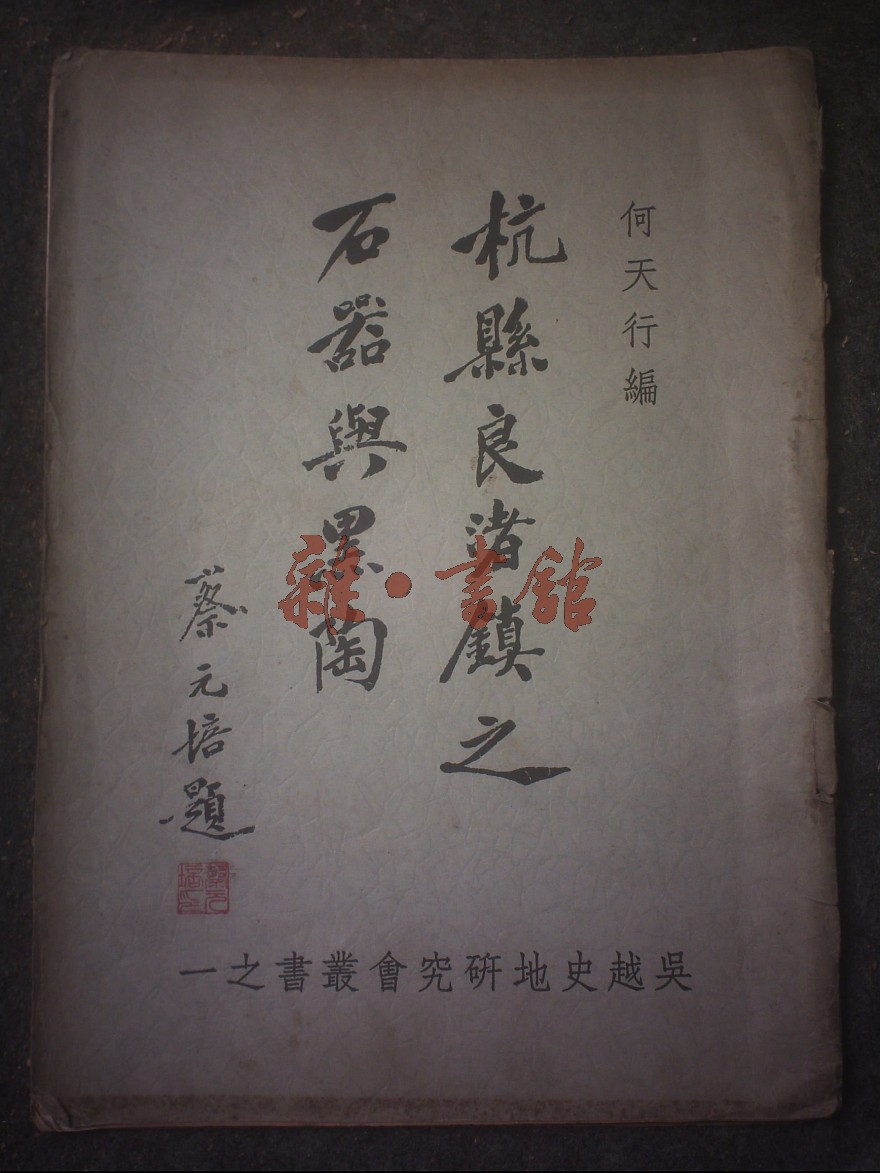 何天行編
杭縣良渚鎮之
石器與黑陶
蔡元培題
蔡元培印
吳越史地研究會叢書之一
雜·書館